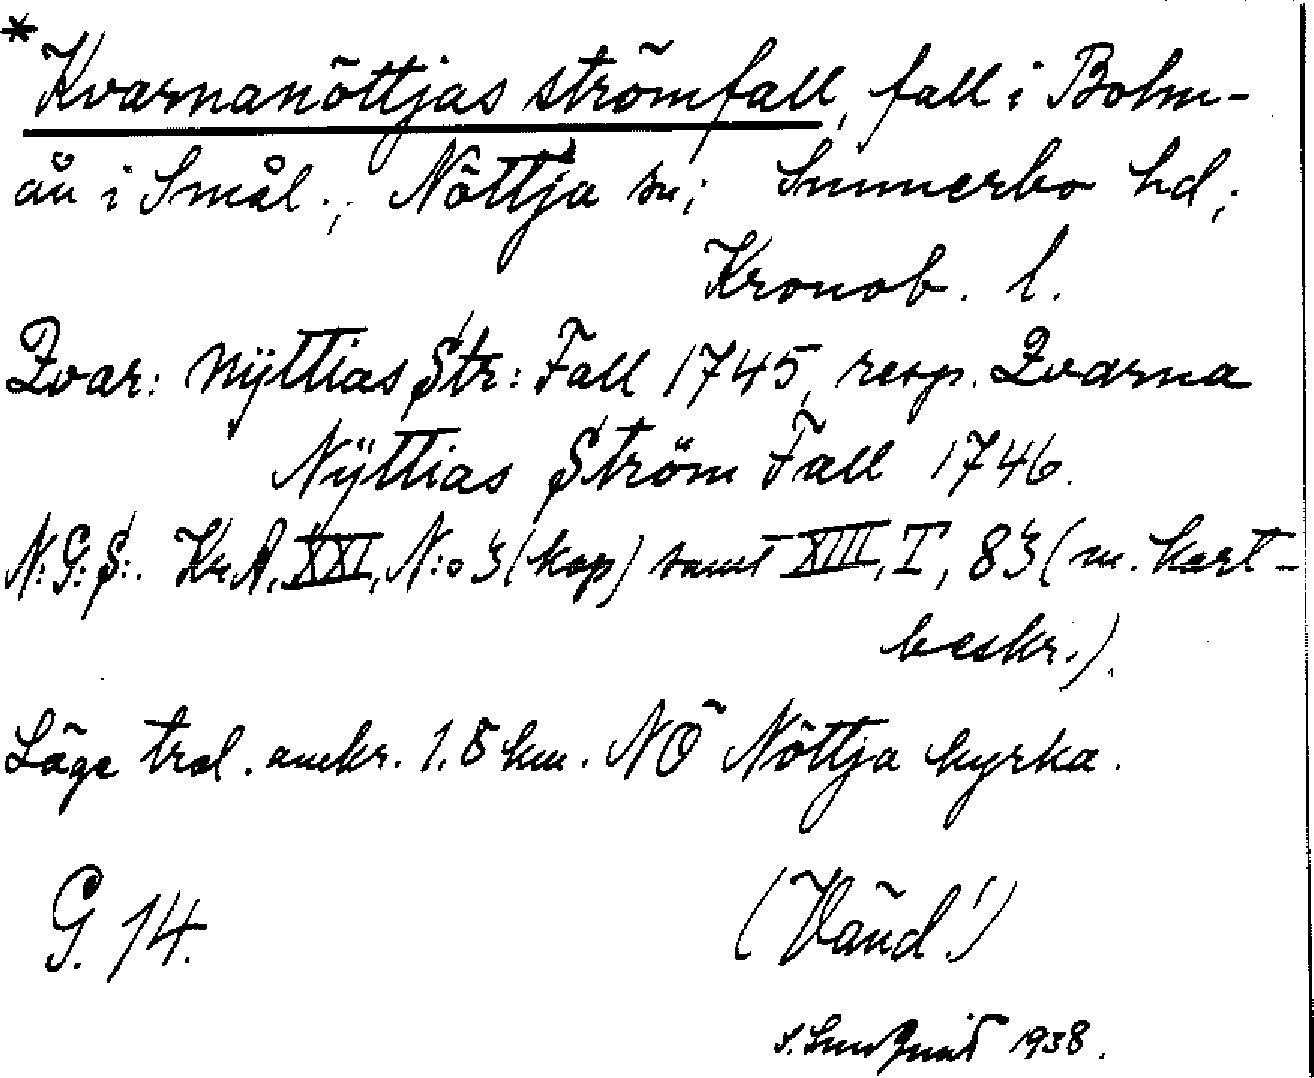 * Kvarnanöttjas strömfall, fall i Bolm-
ån i Smål.; Nöttja sn; Sunnerbo hd;
Kronob. l.
Qvar: Nÿttias Str: Fall 1745, resp. Qvarna
Nÿttias Ström Fall 1746.
N:G:S:. Kr.A. XXI, N:o 3 (kop) samt XIII, I, 83 (m. kart-
beskr.).
Läge trol. omkr. 1.8 km. NÖ Nöttja kyrka.
G. 14.
(Vänd!)
1938.